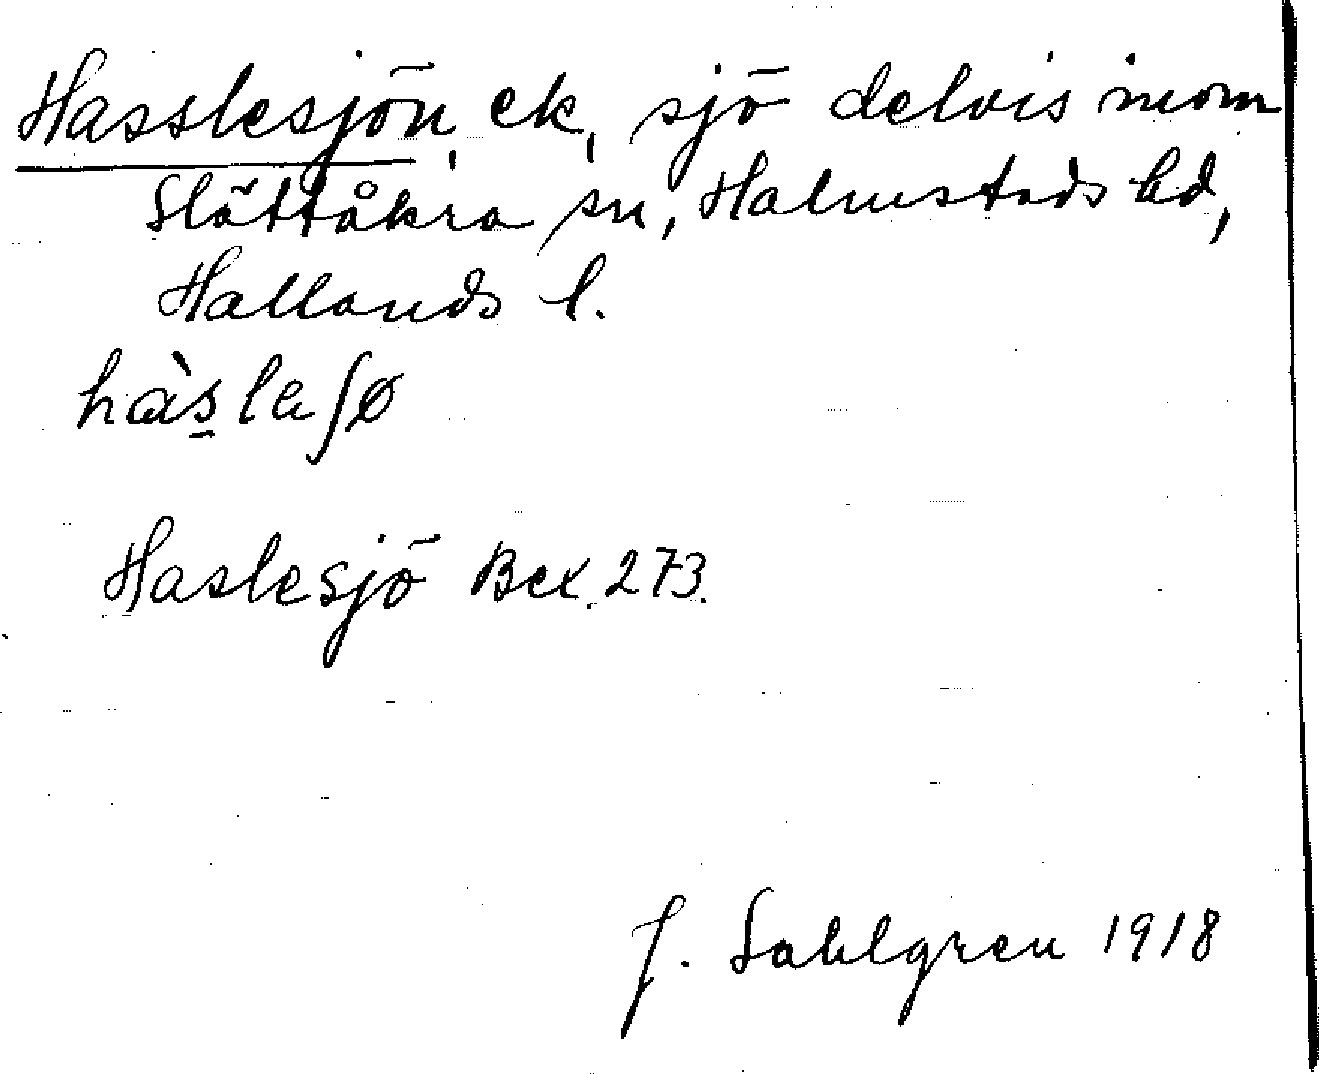 Hasslesjön, ek, sjö delvis inom
Slättåkra sn, Halmstads hd,
Hallands l.
hàs̲leʃø
Haslesjö Bex. 273.
J. Sahlgren 1918